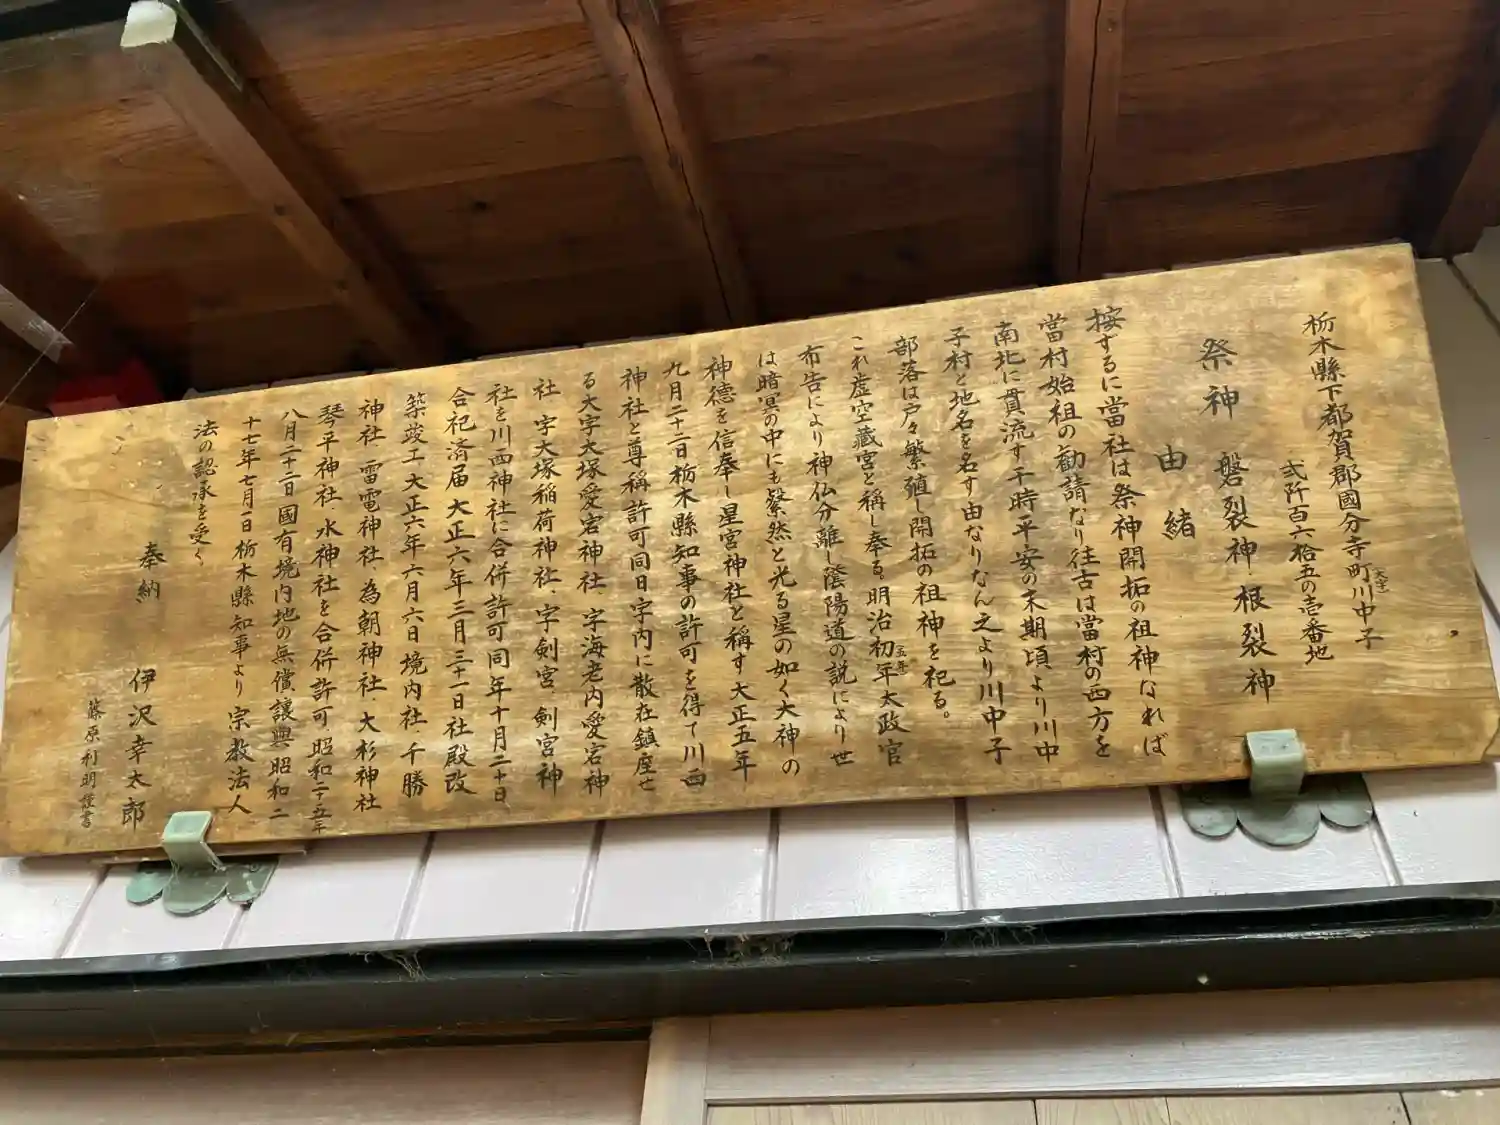 栃木縣下都賀郡國分寺町大字川中子
弐阡百六拾五の壱番地
祭神 磐裂神、根裂神
由緒
按ずるに當社は祭神開拓の祖神なれば
當村始祖の勧請なり往古は當村の西方を
南北に貫流す于時平安の末期頃より川中
子村と地名を名す由なりなん之より川中子
部落は戸々繁殖し開拓の祖神を祀る。
これ虚空蔵宮と称し奉る。明治初年五年太政官
布告により神仏分離し陰陽道の説により世
は暗冥の中にも粲然と光る星の如く大神の
神德を信奉し星宮神社と稱す大正五年
九月二十二日栃木縣知事の許可を得て川西
神社と尊稱許可同日字内に散在鎮座せ
る大字大塚愛宕神社、字海老内愛宕神
社、字大塚稲荷神社、字剣宮、剣宮神
社を川西神社に合併許可同年十月二十日
合祀済届大正六年三月三十一日社殿改
築竣工大正六年六月六日境内社、千勝
神社、雷電神社、為朝神社、大杉神社
琴平神社、水神社を合併許可、昭和二十五年
八月二十二日國有境内地の無償讓與昭和二
十七年七月一日栃木縣知事より宗教法人
法の認承を受く
奉納
伊沢幸太郎
篠原利明謹書